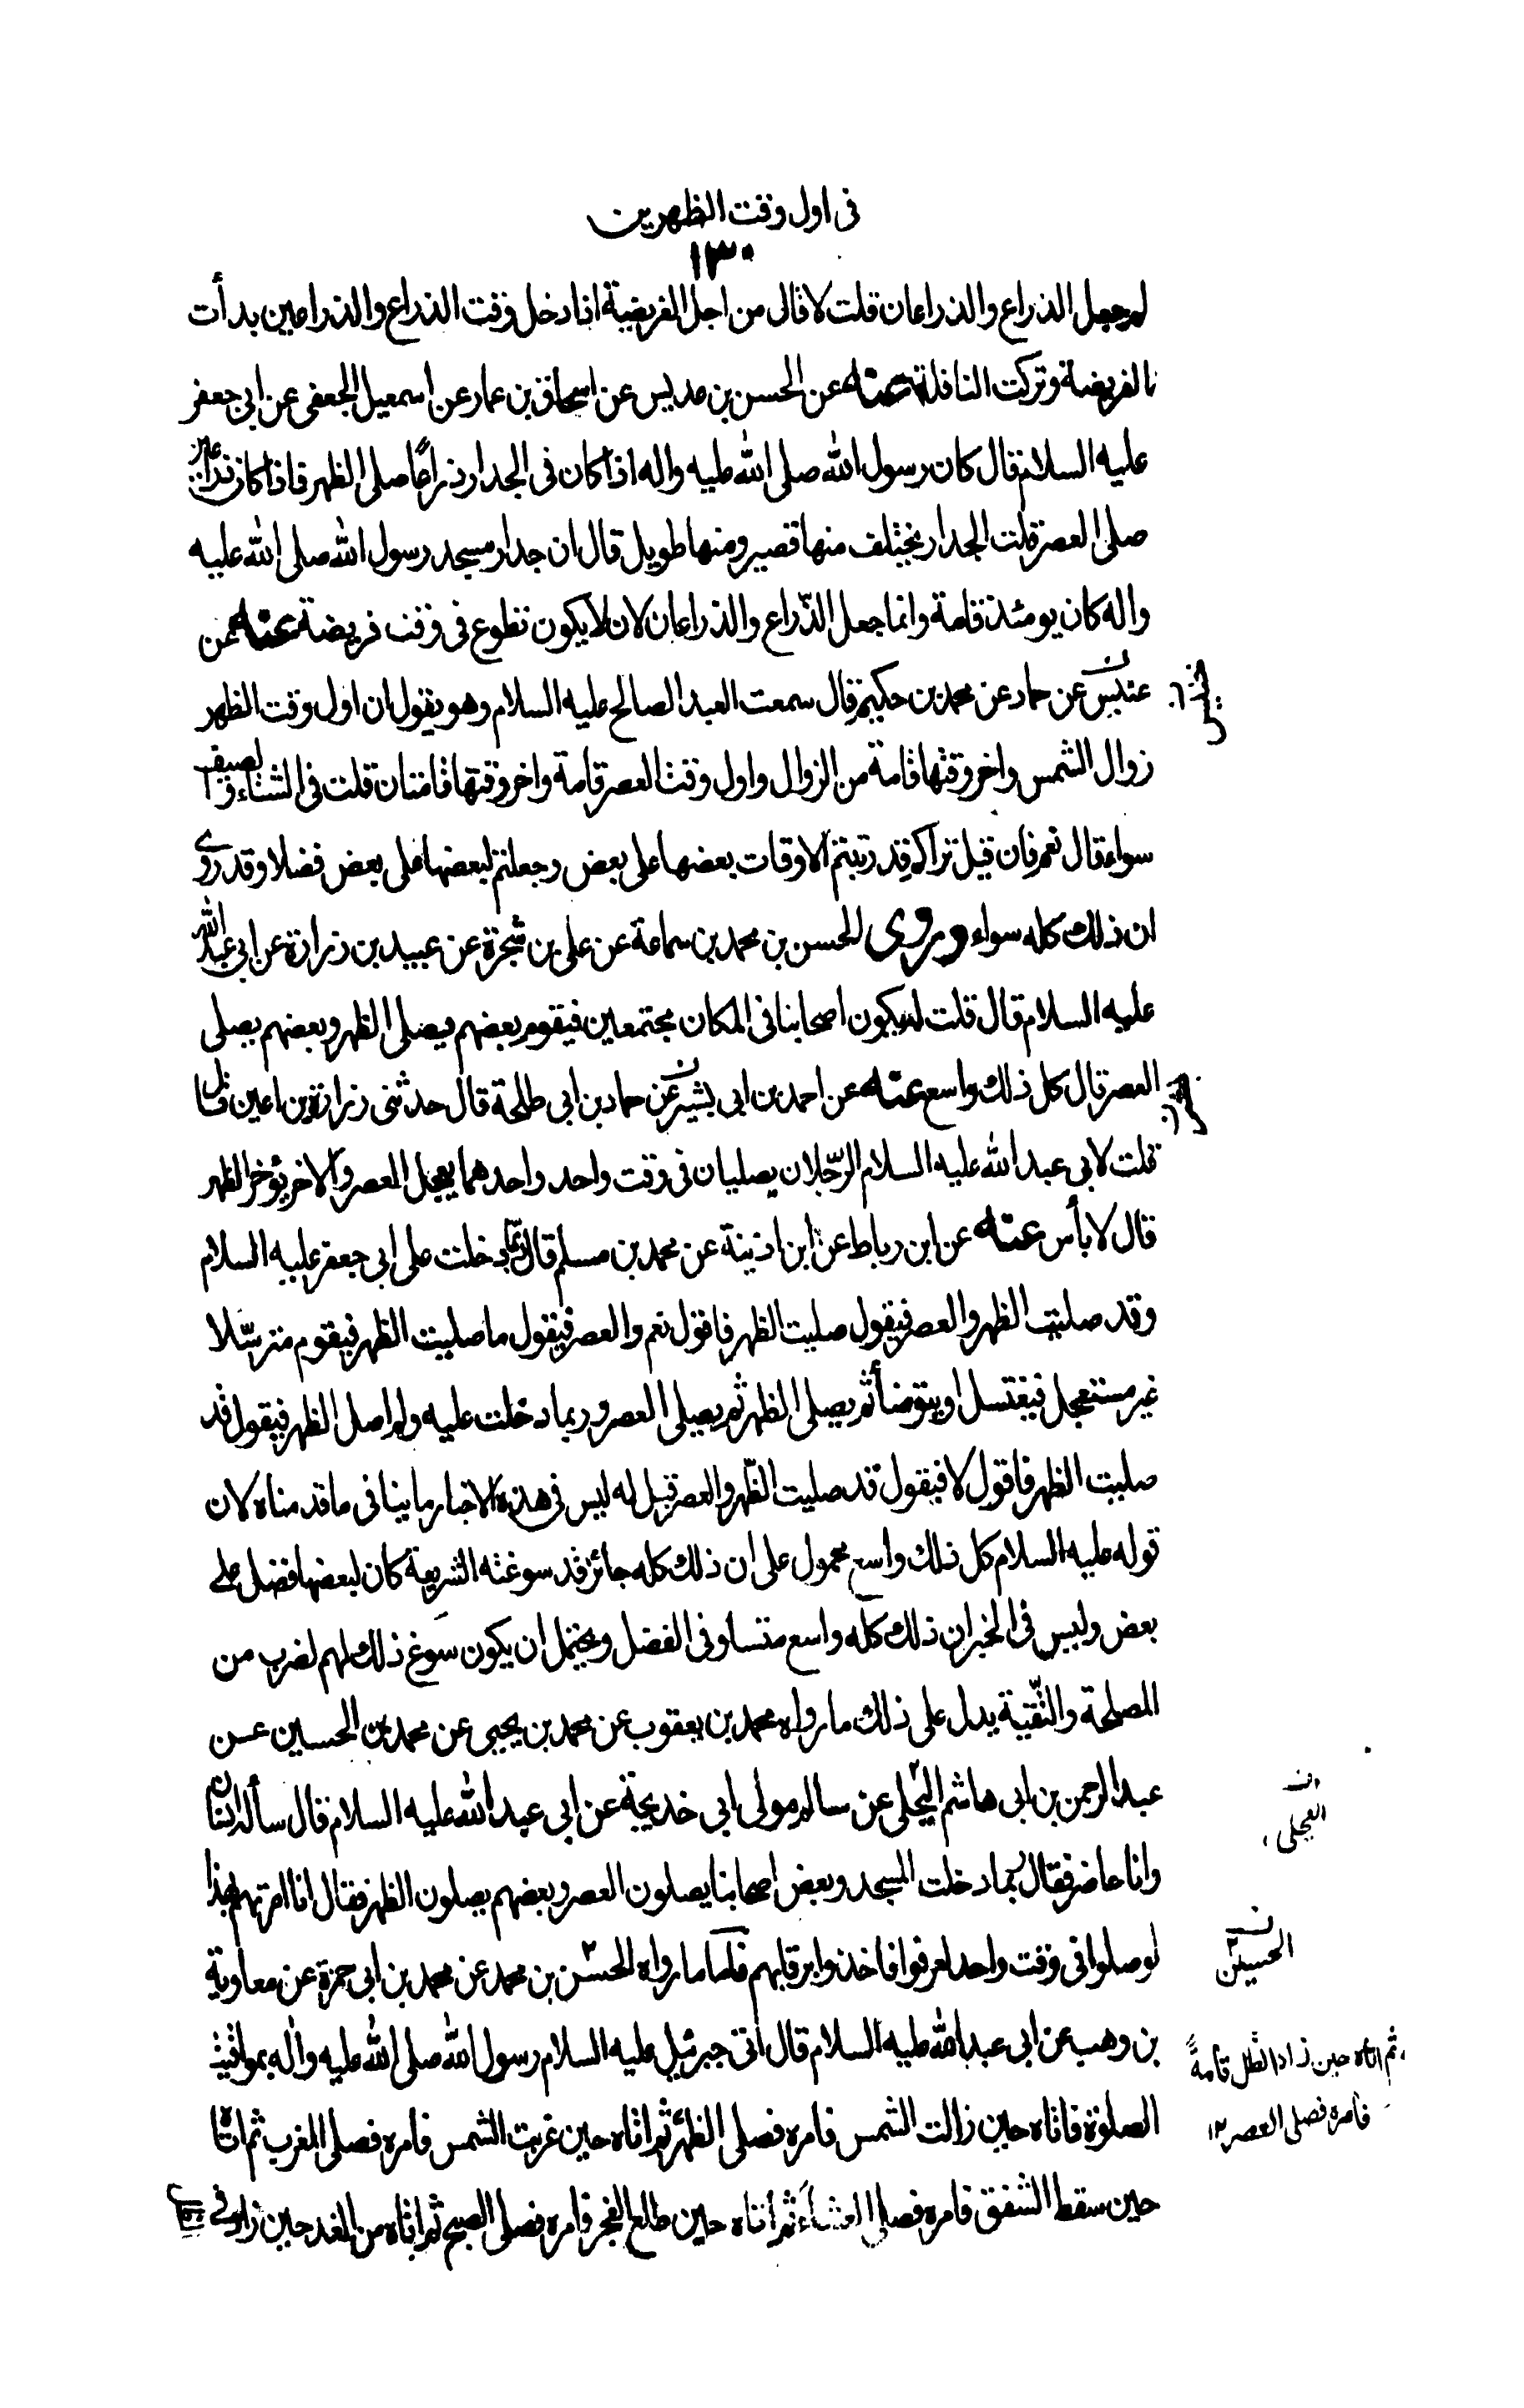 فى اول وقت الظهرين
١٣٠
لم جعل الذراع والذراعان قلت لا قال من اجل الفريضة اذا دخل وقت الذراع والذراعين بدأت
بالفريضة وتركت النافلة عنه عن الحسن بن عديس عن اسحاق بن عمار عن اسمعيل الجعفى عن ابى جعفر
عليه السلام قال كان رسول الله صلى الله عليه واله اذا كان فى الجدار ذراعًا صلى الظهر فاذا كان ذراعين
صلى العصر قلت الجدار يختلف منها قصير ومنها طويل قال ان جدار مسجد رسول الله صلى الله عليه
واله كان يومئذ قامة وانما جعل الذّراع والذراعان لان لا يكون تطوع فى وقت فريضة عنه عن
عنبس عن حماد عن محمد بن حكيم قال سمعت العبد الصالح عليه السلام وهو يقول ان اول وقت الظهر
زوال الشمس واخر وقتها قامة من الزوال واول وقت العصر قامة واخر وقتها قامتان قلت فى الشتاء والصيف
سواء قال نعم فان قيل تراكم قد رتبتم الاوقات بعضها على بعض وجعلتم لبعضها على بعض فضلا وقد روى
ان ذلك كله سواء وروى الحسن بن محمد بن سماعة عن على بن شجرة عن عبيد بن زرارة عن ابى عبد الله
عليه السلام قال قلت له يكون اصحابنا فى المكان مجتمعين فيقوم بعضهم يصلى الظهر وبعضهم يصلى
العصر قال كل ذلك واسع عنه عن احمد بن ابى بشير عن حماد بن ابى طلحة قال حدثنى زرارة بن اعين قال
قلت لابى عبد الله عليه السلام الرّجلان يصليان فى وقت واحد واحدهما يعجل العصر والاخر يؤخر الظهر
قال لا بأس عنه عن ابن رباط عن ابن اذينة عن محمد بن مسلم قال ربما دخلت على ابى جعفر عليه السلام
وقد صليت الظهر والعصر فيقول صليت الظهر فاقول نعم والعصر فيقول ما صليت الظهر فيقوم مترسّلا
غير مستعجل فيغتسل او يتوضأ ثم يصلى الظهر ثم يصلى العصر وربما دخلت عليه ولم اصل الظهر فيقول قد
صليت الظهر فاقول لا فيقول قد صليت الظّهر والعصر قيل له ليس فى هذه الاخبار ما ينافى ما قدمناه لان
قوله عليه السلام كل ذلك واسع محمول على ان ذلك كله جائز قد سوغته الشريعة كان لبعضها فضل على
بعض وليس فى الخبر ان ذلك كله واسع متساو فى الفضل ويحتمل ان يكون سوّغ ذلك لهم لضرب من
المصلحة والتّقية يدل على ذلك ما رواه محمد بن يعقوب عن محمد بن يحيى عن محمد بن الحسين عن
عبد الرحمن بن ابى هاشم البجلى عن سالم مولى ابى خديجة عن ابى عبد الله عليه السلام قال سأله انسان
وانا حاضر فقال ربما دخلت المسجد وبعض اصحابنا يصلون العصر وبعضهم يصلون الظهر فقال انا امرتهم بهذا
لو صلوا فى وقت واحد لعرفوا فاخذوا برقابهم فاما ما رواه الحسن بن محمد عن محمد بن ابى حمزة عن معاوية
بن وهب عن ابى عبد الله عليه السلام قال اتى جبرئيل عليه السلام رسول الله صلى الله عليه واله بمواقيت
الصلوة فاتاه حين زالت الشمس فامره فصلى الظهر ثم اتاه حين غربت الشمس فامره فصلى المغرب ثم اتاه
حين سقط الشفق فامره فصلى العشاء ثم اتاه حين طلع الفجر فامره فصلى الصبح ثم اتاه من الغد حين زاد فى
العجلى
الحسين
ثم اتاه حين زاد الظل قامةً
فامره فصلى العصر ١٢